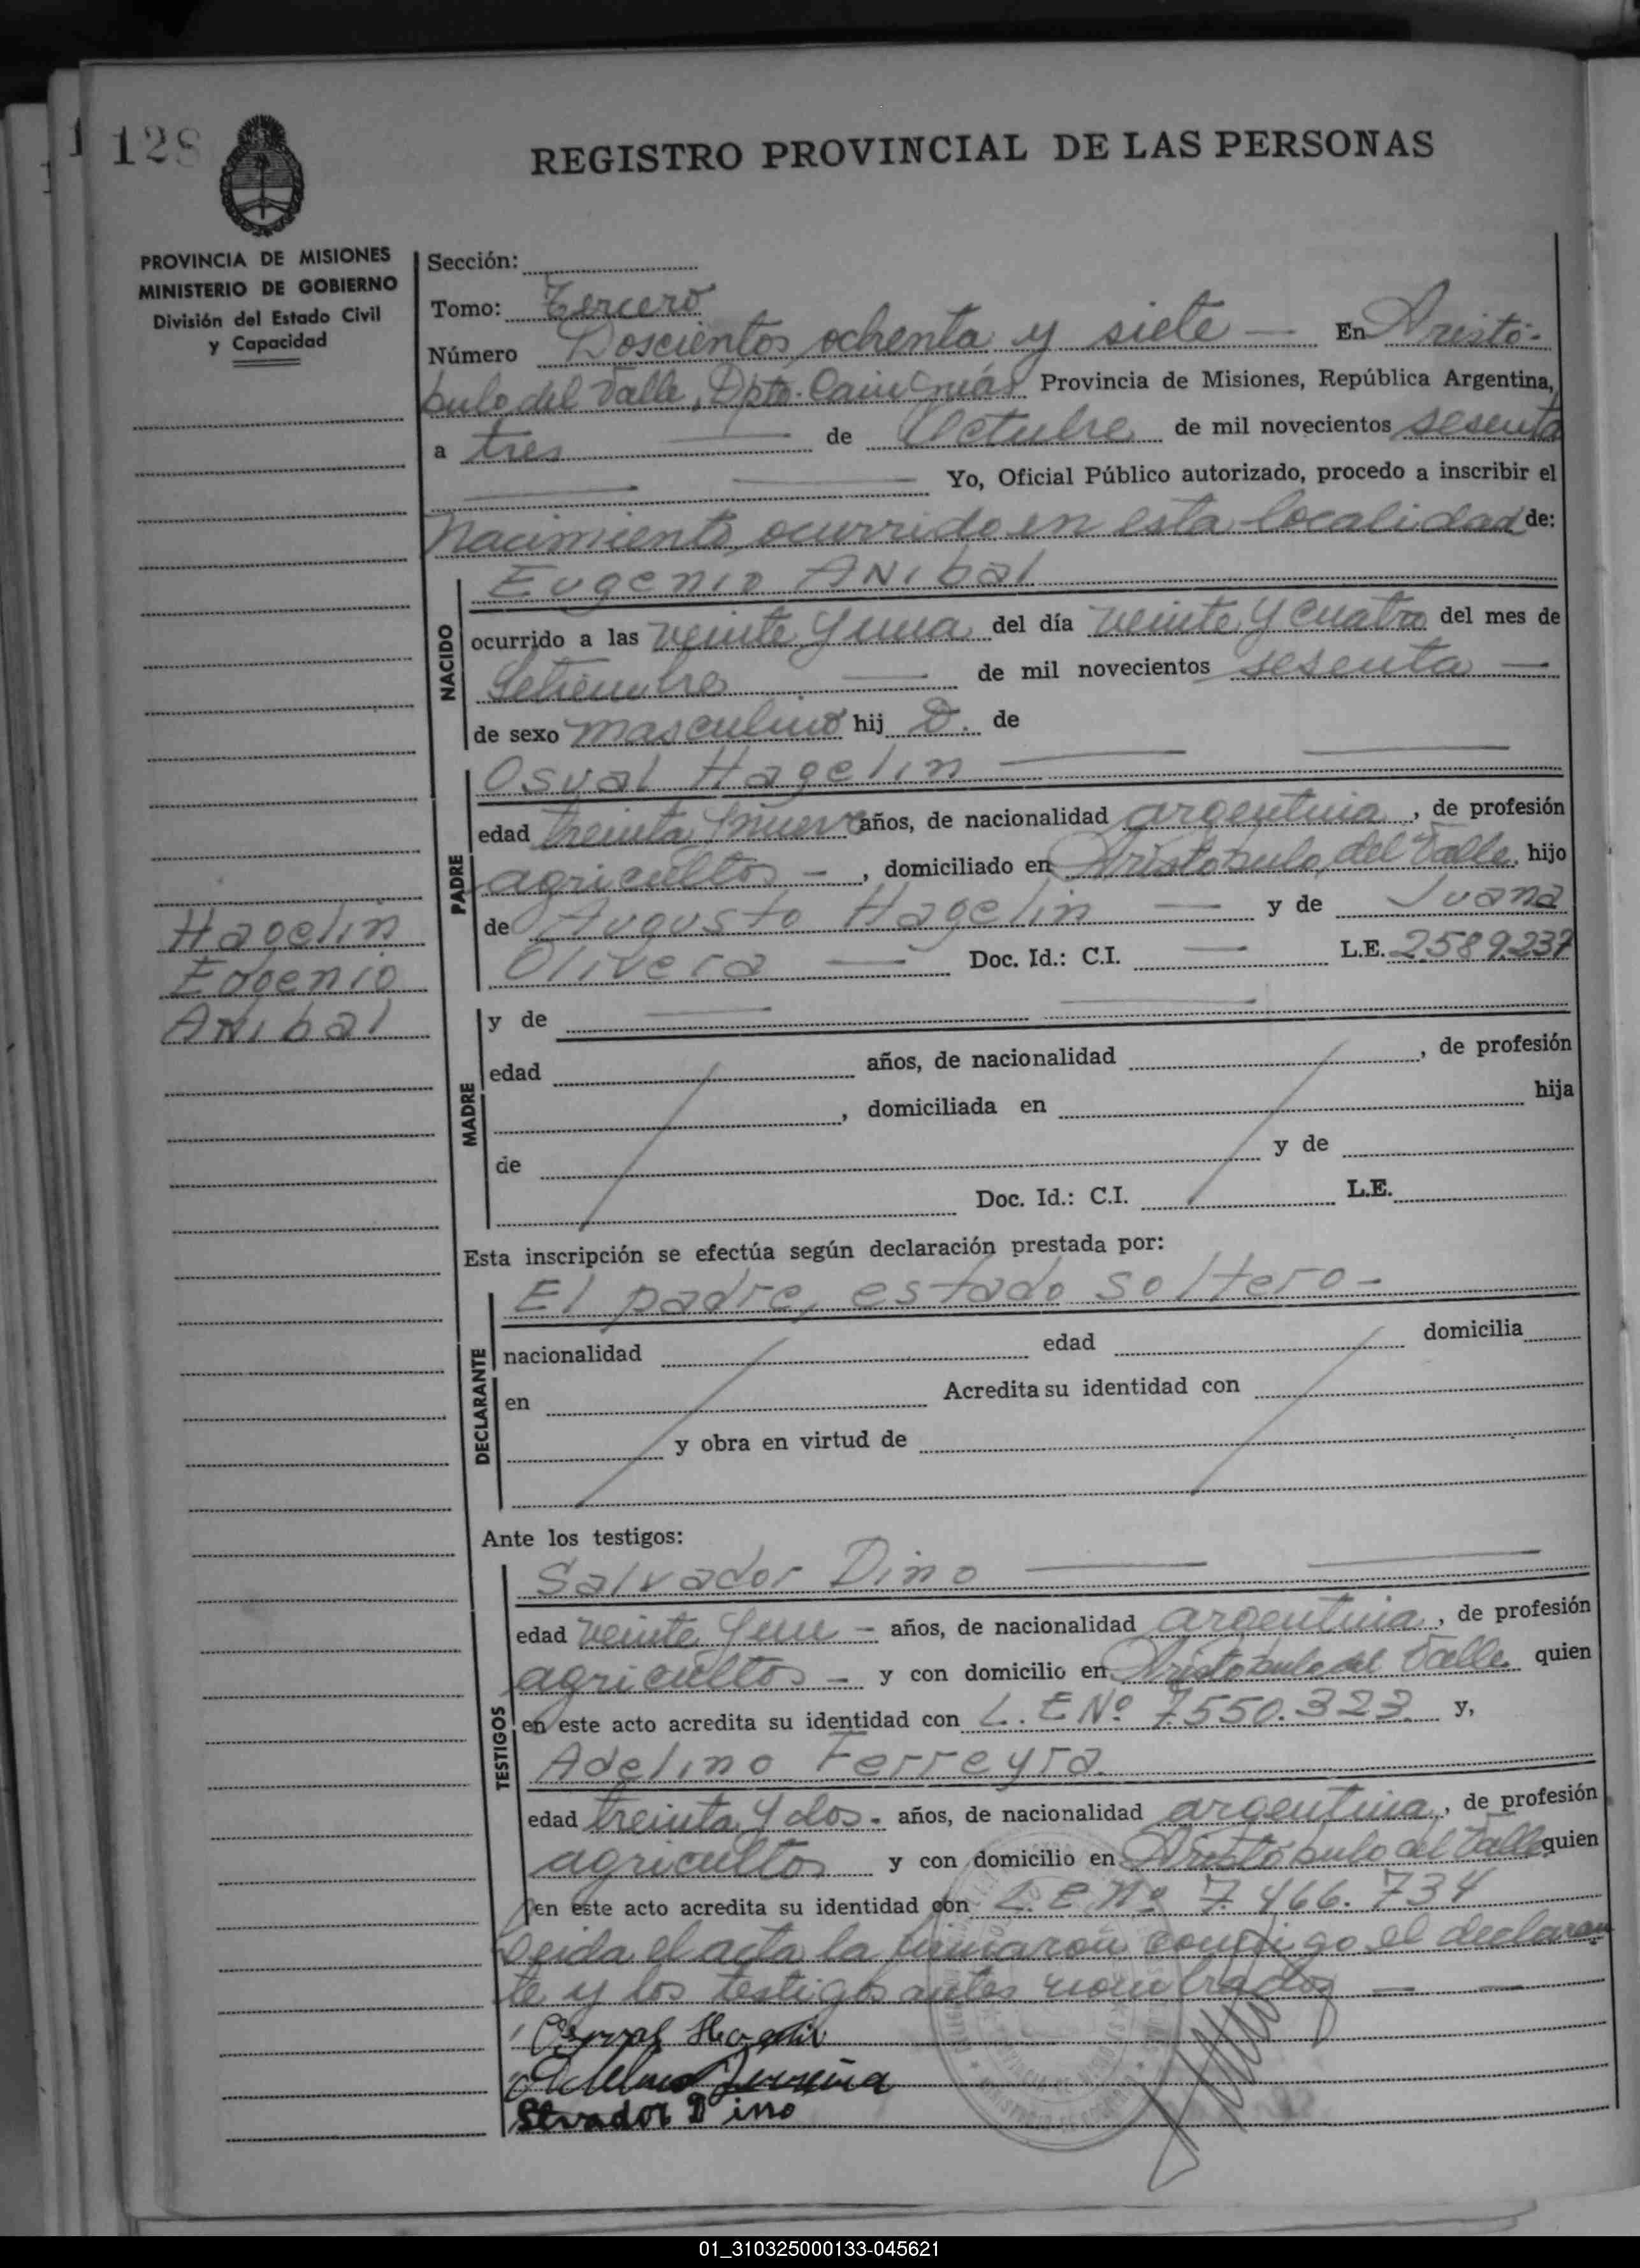 128
REGISTRO PROVINCIAL DE LAS PERSONAS
PROVINCIA DE MISIONES
MINISTERIO DE GOBIERNO
División del Estado Civil
y Capacidad
Sección:
Tomo: Tercero
Número Doscientos ochenta y siete — En Aristó-
bulo del Valle, Dpto. Cainguás Provincia de Misiones, República Argentina,
a tres — de Octubre de mil novecientos sesenta
Yo, Oficial Público autorizado, procedo a inscribir el
Nacimiento ocurrido en esta localidad de:
NACIDO
Eugenio Anibal
ocurrido a las veinte y una del día veinte y cuatro del mes de
Setiembre — de mil novecientos sesenta —
de sexo masculino hij o. de
PADRE
Osval Hagelin —
edad treinta y nueve años, de nacionalidad argentina, de profesión
agricultor -, domiciliado en Aristóbulo del Valle, hijo
de Augusto Hagelin — y de Juana
Olivera — Doc. Id.: C.I. — L.E. 2589.237
Hagelin
Eugenio
Anibal
MADRE
y de —
edad años, de nacionalidad , de profesión
, domiciliada en hija
de y de
Doc. Id.: C.I. L.E.
Esta inscripción se efectúa según declaración prestada por:
DECLARANTE
El padre, estado soltero-
nacionalidad edad domicilia
en Acredita su identidad con
y obra en virtud de
Ante los testigos:
TESTIGOS
Salvador Dino —
edad veinte y un - años, de nacionalidad argentina, de profesión
agricultor - y con domicilio en Aristóbulo del Valle quien
en este acto acredita su identidad con L. E Nº 7.550.323 y,
Adelino Ferreyra
edad treinta y dos - años, de nacionalidad argentina, de profesión
agricultor y con domicilio en Aristóbulo del Valle quien
en este acto acredita su identidad con L. E. Nº 7.466.734
Leida el acta la firmaron conmigo el declaran
te y los testigos antes nombrados — —
Osval Hagelin
Salvador Dino
01_310325000133-045621